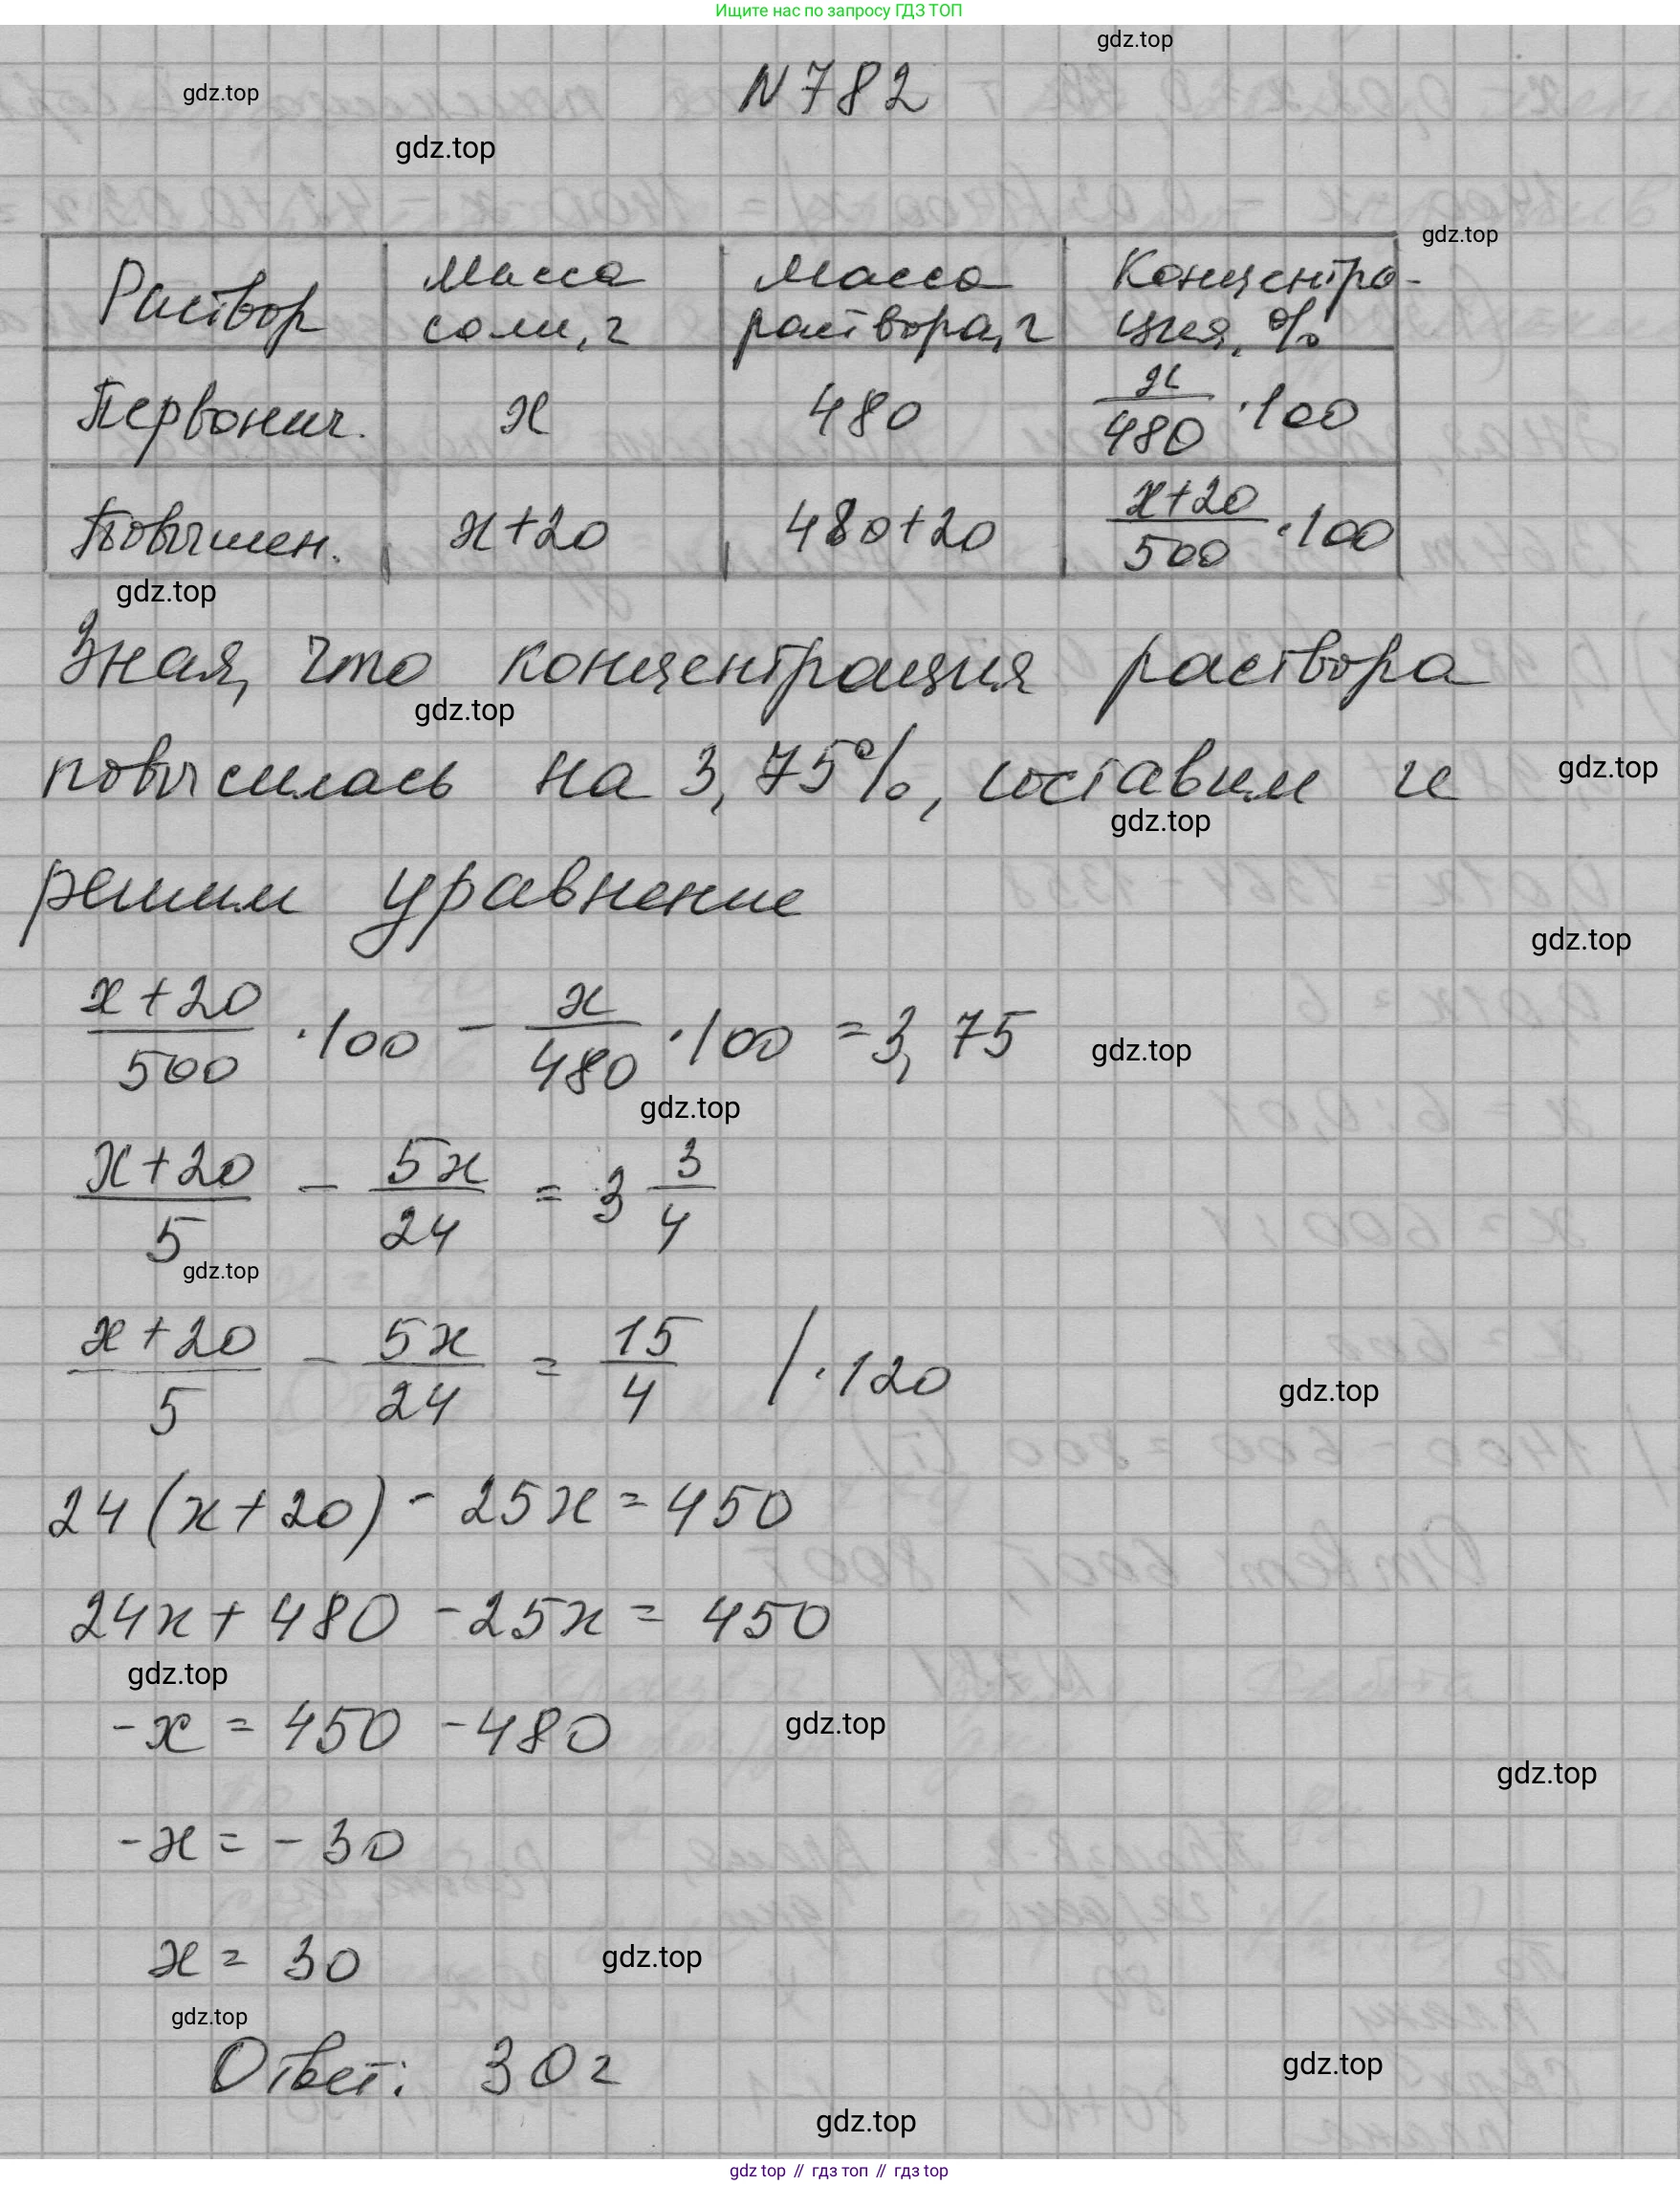 Ищите нас по запросу ГДЗ ТОП
gdz.top
N782
gdz.top
gdz.top
gdz.top
Раствор | Масса соли, г | Масса раствора, г | Концентра-ция, %
Первонач. | x | 480 | x/480 · 100
Повышен. | x+20 | 480+20 | x+20/500 · 100
gdz.top
Зная, что концентрация раствора
gdz.top
повысилась на 3,75%, составим и
gdz.top
gdz.top
решим уравнение
gdz.top
x+20/500 · 100 - x/480 · 100 = 3,75
gdz.top
gdz.top
x+20/5 - 5x/24 = 3 3/4
gdz.top
x+20/5 - 5x/24 = 15/4 /·120
gdz.top
24(x+20) - 25x = 450
24x + 480 - 25x = 450
gdz.top
-x = 450 - 480
gdz.top
gdz.top
-x = -30
x = 30
gdz.top
gdz.top
Ответ: 30г
gdz.top
gdz.top
gdz top // гдз топ // гдз top